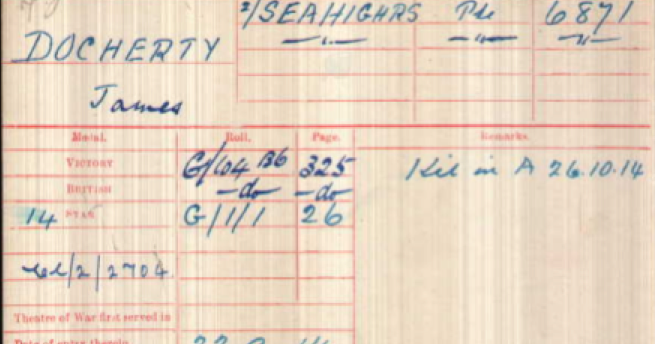 2/SEAHIGHRS Pte 6871
DOCHERTY —〃— —〃— —〃—
James
Medal. Roll. Page. Remarks.
VICTORY G/104 B6 325 Kil in A 26.10.14
BRITISH —do— —do—
14 STAR G/1/1 26
/2/2704
Theatre of War first served in
Date of entry therein